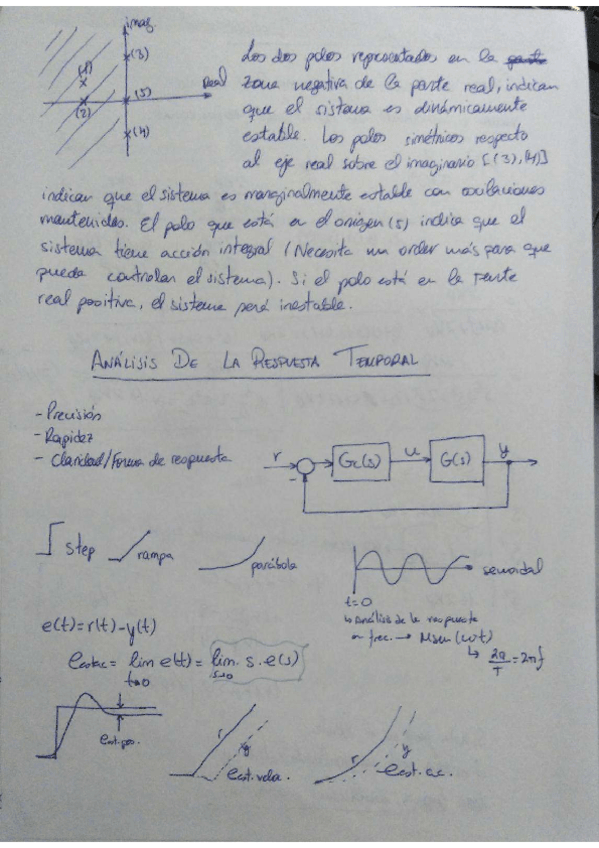 imag.
(3)
(1)
Real
(5)
(2)
(4)
Los dos polos representados en la
zona negativa de la parte real, indican
que el sistema es dinámicamente
estable. Los polos simétricos respecto
al eje real sobre el imaginario [(3),(4)]
indican que el sistema es marginalmente estable con oscilaciones
mantenidas. El polo que está en el origen (5) indica que el
sistema tiene acción integral (Necesita un order más para que
pueda controlar el sistema). Si el polo está en la parte
real positiva, el sistema será inestable.
ANÁLISIS DE LA RESPUESTA TEMPORAL
- Precisión
- Rapidez
- Claridad/Forma de respuesta
r
-
Gc(s)
u
G(s)
y
step
rampa
parábola
senoidal
t=0
↳ Análisis de la respuesta
en frec. → M sen(ωt)
e(t)=r(t)-y(t)
= 2πf
T
lim e(t) = lim s.e(s)
s→0
r
y
r
y